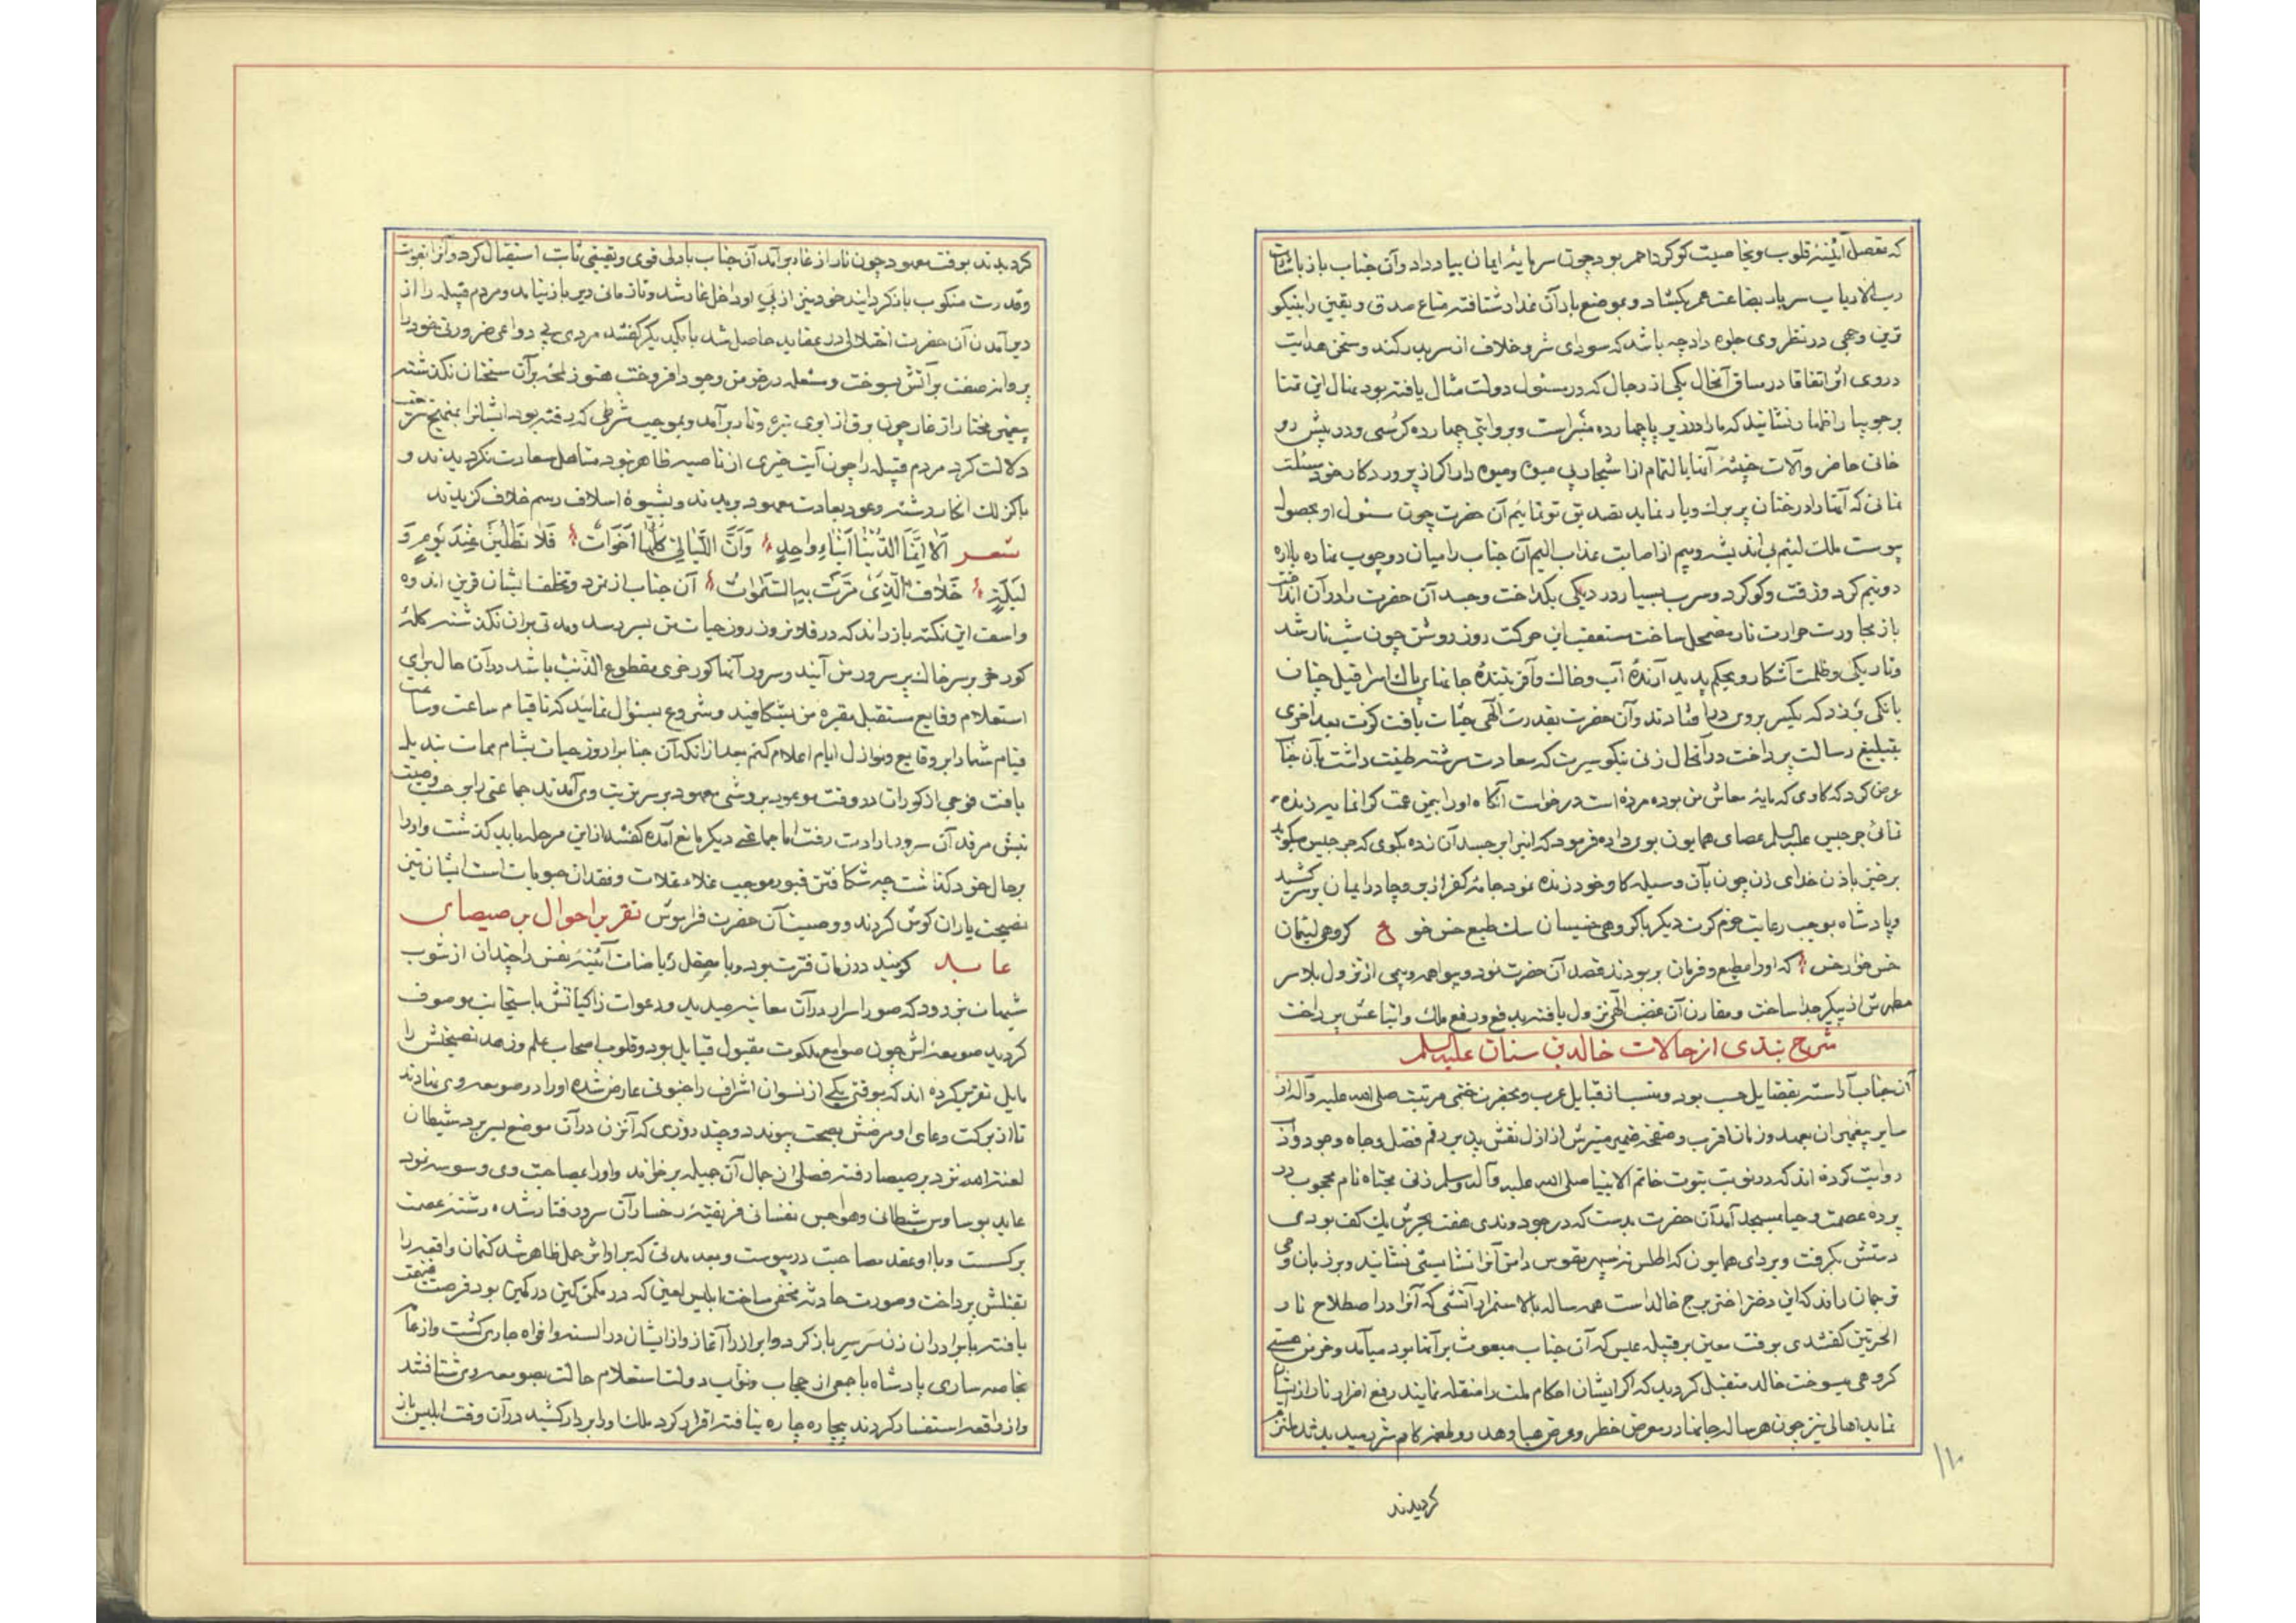 که بصقل آئینه قلوب و بخاصیت کوکرد احمر بود چون سرمایه ایمان بیاد داد و آن جناب باز باشارت
رب الارباب سر بار بضاعت عمر بکشاد و بموضع باد آن غدار شتافته متاع صدق و یقین را بنیکو
ترین وجهی در نظر وی جلوه داد چه باشد که سودای شر و خلاف از سر بدر کند و سخن هدایت
در وی اثر اتفاقا در مساق آنحال یکی از رجال که در مسئول دولت مثال یافته بود بمنال این تمنا
بر جویبار اظهار نشانید که ما را در زیر پا چهارده منبر است و بروایتی چهارده کرسی و در پیش رو
خانی حاضر و آلات خشبه آنها بالتمام از اشجار بی میوه و میوه دار اکر از پروردکار خود مسئلت
نمائی که آنها را درختان پر برك و بار نماید تصدیق تو نمائیم آن حضرت چون مسئول او بحصول
پیوست ملك لئیم بی اندیشه و بیم از اصابت عذاب الیم آن جناب را میان دو چوب نهاده باره
دو نیم کرد و زفت و کوکرد و سرب بسیار در دیکی بکداخت و جسد آن حضرت را در آن انداخت
باز مجاورت حرارت نار مضمحل ساخت متعقب این حرکت روز روشن چون شب تار شد
و تاریکی و ظلمت آشکار و بحکم پدید آرنده آب و خاك و آفریننده جانهای پاك اسرافیل چنان
بانکی بر زد که یکسر بروی در افتادند و آن حضرت بقدرت الهی حیات یافت کرت بعد اخری
بتبلیغ رسالت پرداخت در آنحال زنی نیکو سیرت که سعادت سرشته طینت داشت بآن جناب
عرض کرد که کاوی که مایه معاش من بوده مرده است درخواست آنکاه او را بیمن همت کرانمایه زنده
نمائی جرجیس علیه السلم عصای همایون بوی داده فرمود که این را بر جسد آن زده بکوی که جرجیس میکوید
برخیز باذن خدای زن چون بآن وسیله کاو خود زنده نمود جامه کفر از بر و چادر ایمان بر سر کشید
و پادشاه بموجب رعایت حزم کرت دیکر با کروهی خسیسان سك طبع خس خو ع کروهی لئیمان
خس خوار خس که او را مطیع و فرمان بر بودند قصد آن حضرت نمود و بیواهمه و بیمی از نزول بلا سر
مطهرش از پیکر جدا ساخت و مقارن آن غضب الهی نزول یافته بدفع و رفع ملك و اتباعش پرداخت
شرح نبذی از حالات خالد بن سنان علیه السلم
آن جناب آراسته بفضایل حسب بود و منتسب از قبایل عرب و بحضرت ختمی مرتبت صلی الله علیه و آله از
سایر پیغمبران بعهد و زمان اقرب و صفحه ضمیر منیرش از ازل نقش پذیر رقم فضل و جاه وجود و از
روایت کرده اند که در نوبت نبوت خاتم الانبیا صلی الله علیه و آله و سلم زنی محیاه نام محجوب در
پرده عصمت و حیا بمسجد آمد آن حضرت بدست که در جود و ندی هفت بحرش یك کف بودی
دستش بکرفت و بردای همایون که اطلس نه سپهر مقوس دامن آنرا نشایستی نشانید و بر زبان وحی
ترجمان راند که این دختر اختر برج خالد است همه ساله بالاستمرار آتشی که آنرا در اصطلاح نار
الحرتین کفتندی بوقت معین بر قبیله عبس که آن جناب مبعوث بر آنها بود میآمد و خرمن هستی
کروهی میسوخت خالد متقبل کردید که اکر ایشان احکام ملت را متقلد نمایند رفع اضرار نار از ایشان
نماید اهالی نیز چون هر ساله جانها در معرض خطر و عرض هبا و هدر و طعمه کام شرر میدیدند ملتزم
۱۱۰
کردیدند
کردیدند بوقت معهود چون نار از غار بر آمد آن جناب با دلی قوی و یقینی ثابت استقبال کرد و آنرا بقوت
و قدرت منکوب باز کردانید خود نیز از پی او داخل غار شد و تا زمانی دیر باز نیامد و مردم قبیله را از
دیر آمدن آن حضرت اختلالی در عقاید حاصل شد با یکدیکر کفتند مردی بی دواعی ضرورتی خود را
پروانه صفت بر آتش بسوخت و شعله در خرمن وجود افروخت هنوز لمحه بر آن سخنان نکذشته
پیغمبر مختار از غار چون برق از ابری تیره و تار بر آمد و بموجب شرطی که رفته بود ایشانرا بمنهج شرع حنیف
دلالت کرد مردم قبیله را چون آیت خیری از ناصیه ظاهر نبود متاهل سعادت نکردیدند و
باکز لك انکار رشته وعود بعادت معهود بریدند و بشیوه اسلاف رسم خلاف کزیدند
شعر اَلَا اِنَّمَا الدُّنْیَا اَبْنَاءِ وَاحِدٍ وَاَنَّ اللَّیَالِی کُلُّهَا اَخَوَاتٌ فَلَا تَطْلُبَنْ عِنْدَ یَوْمٍ وَ
لَیْلَةٍ خَلَافَ الَّذِی مَرَّتْ بِهِ السَّنَوَاتُ آن جناب از تمرد و تخلف ایشان قرین اندوه
و اسف این نکته باز راند که در فلان روز روز حیات من بسر رسد و مدتی بر آن نکذشته کله
کور خر بر سر خاك بر سرو من آیند و سرور آنها کور خری مقطوع الذنب باشد در آن حال برای
استعلام وقایع مستقبل مقبره من بشکافید و شروع بسئوال نمائید که تا قیام ساعت و ساعت
قیام شما را بر وقایع و نوازل ایام اعلام کنم بعد از آنکه آن جناب را روز حیات بشام ممات تبدیل
یافت فوجی از کوران در وقت موعود بروشی معهود بر سر تربت وی آمدند جماعتی را بر حسب وصیت
نبش مرقد آن سرور ارادت رفت اما جماعتی دیکر مانع آمده کفتند از این مرحله باید کذشت و او را
بحال خود کذاشت چه شکافتن قبور موجب غلاء غلات و فقدان حبوبات است ایشان نیز
نصیحت یاران کوش کردند و وصیت آن حضرت فراموش تقریر احوال برصیصای
عابد کویند در زمان فترت بود و با مصقل ریاضات آئینه نفس را چندان از شوب
شبهات بزدود که صور اسرار در آن معاینه میدید و دعوات زاکیاتش باستجابت موصوف
کردید صومعه اش چون صوامع ملکوت مقبول قبایل بود و قلوب اصحاب علم و زهد نصیحتش را
مایل تقریر کرده اند که بوقتی یکی از نسوان اشراف را جنونی عارض شده او را در صومعه وی نهادند
تا از برکت دعای او مرضش بصحت پیوندد و چند روزی که آنزن در آن موضع بسر برد شیطان
لعنه الله نزد برصیصا رفته فصلی از جمال آن جمیله بر خواند و او را بمصاحبت وی وسوسه نمود
عابد بوساوس شیطانی و هواجس نفسانی فریفته رخسار آن سرو رفتار شده رشته عصمت
بر کسست و با او عقد مصاحبت در پیوست و بعد مدتی که بر او اثر حمل ظاهر شد کتمان واقعه را
بقتلش پرداخت و صورت حادثه مخفی ساخت ابلیس لعین که در مکمن کین در کمین بود فرصت غنیمت
یافته با برادران زن سر سر باز کرد و ابراز راز آغاز و از ایشان در السنه و افواه جاری کشت و از عام
بخاصه ساری پادشاه با جمعی از حجاب و نواب دولت استعلام حالت بصومعه وی شتافتند
و از واقعه استفسار کردند بیچاره چاره نیافته اقرار کرد ملك او را بر دار کشید در آن وقت ابلیس باز